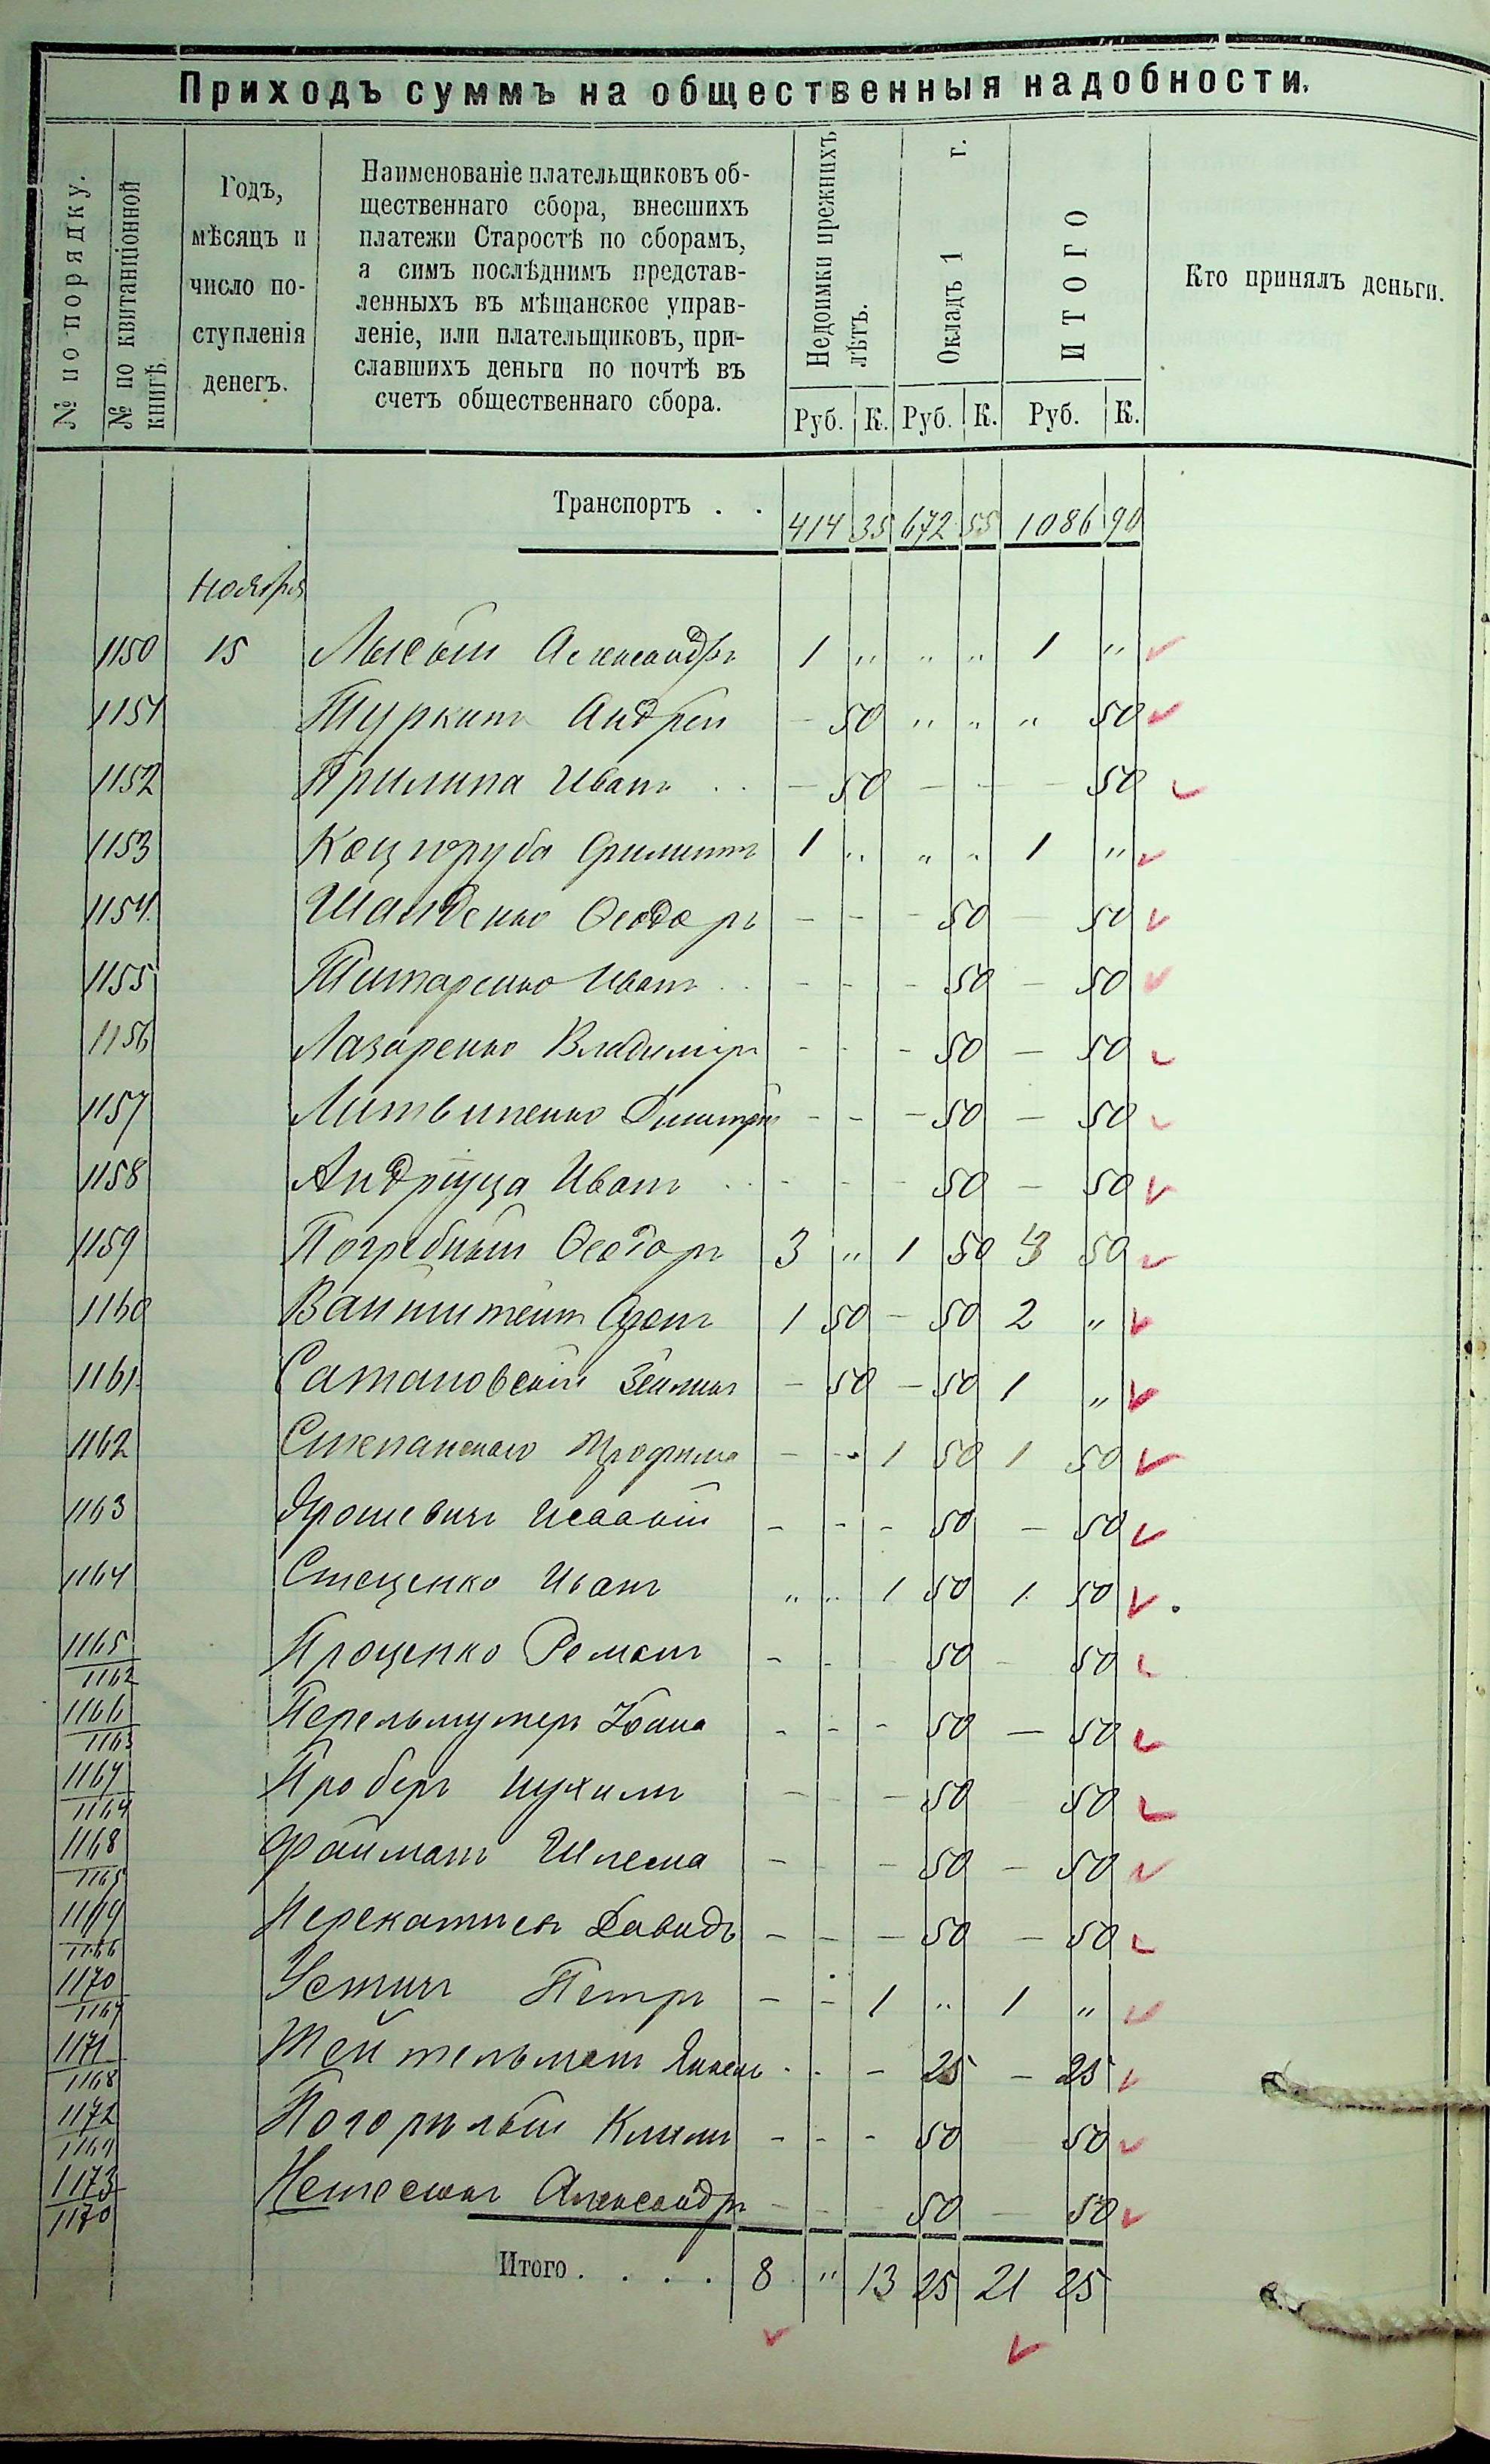 Приходъ суммъ на общественныя надобности.
№ по порядку.
№ по квитанціонной книгѣ.
Годъ, мѣсяцъ и число поступленія денегъ.
Наименованіе плательщиковъ об-
щественнаго сбора, внесшихъ
платежи Старостѣ по сборамъ,
а симъ послѣднимъ представ-
ленныхъ въ мѣщанское управ-
леніе, или плательщиковъ, при-
славшихъ деньги по почтѣ въ
счетъ общественнаго сбора.
Недоимки прежнихъ лѣтъ.
Окладъ 1 г.
ИТОГО
Кто принялъ деньги.
Руб. К. Руб. К. Руб. К.
Транспортъ . . 414 35 672 55 1086 90
Ноября
1150 15 Лысый Александръ 1 " " " 1 "
1151 Туркинъ Андрей - 50 " " " 50
1152 Прилипа Иванъ . . - 50 - - - 50
1153 Коцюруба Филиппъ 1 " " " 1 "
1154 Шанденко Феодоръ - - - 50 - 50
1155 Титаренко Иванъ . . - - - 50 - 50
1156 Лазаренко Владиміръ - - - 50 - 50
1157 Литвиненко Дмитрій - - - 50 - 50
1158 Андріуца Иванъ . . - - - 50 - 50
1159 Погребный Феодоръ 3 " 1 50 3 50
1160 Ванштейнъ 1 50 - 50 2 "
1161 Сатановскій - 50 - 50 1 "
1162 Степанскаго Трофима - - 1 50 1 50
1163 Ярошевичъ Исаакій - - - 50 - 50
1164 Стеценко Иванъ " " 1 50 1 50
1165 Проценко Романъ - - 50 - 50
1162
1166 Перельмутеръ - - - 50 - 50
1163
1167 Проберъ - - 50 50
1164
1168 Файманъ Шлема - - 50 - 50
1165
1169 Перекатиевъ Давидъ - - - 50 - 50
1166
1170 Устичъ Петръ - - 1 " 1 "
1167
1171 Тейтельманъ Янкель - - - 25 - 25
1168
1172 Погорилый Климъ - - - 50 50
1169
1173 Александръ - - - 50 - 50
1170
Итого . . . . 8 " 13 25 21 25